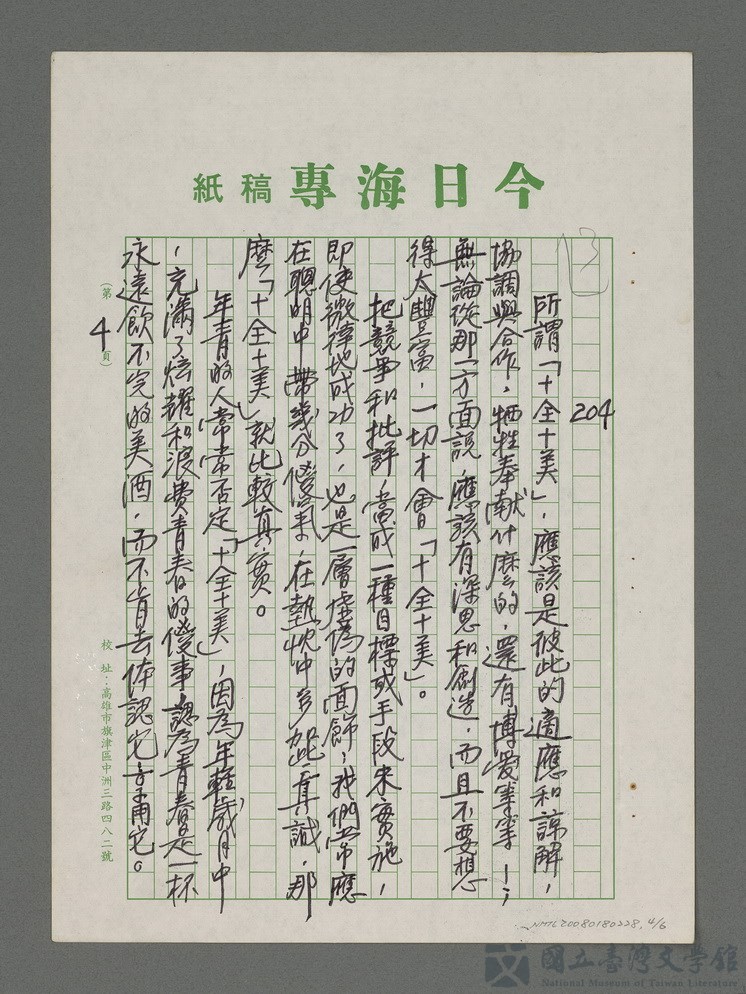 今日海專 稿紙
13
204
所謂「十全十美」，應該是彼此的適應和諒解，
協調與合作，牺牲奉献什麼的，還有博愛等等——；
無論從那一方面說，應該有深思和創造，而且不要想
得太豐富，一切才會「十全十美」。
把競爭和批評，當成一種目標或手段來實施，
即使徼倖地成功了，也是一層虛偽的面飾，我們常應
在聰明中帶幾分傻氣，在熱忱中多些真誠，那
麼「十全十美」就比較真實。
年青的人常常否定「十全十美」，因為年輕歲月中
，充滿了炫耀和浪費青春的傻事，認為青春是一杯
永遠飲不完的美酒，而不肯去体認它去
（第 4 頁）
校 址：高雄市旗津區中洲三路四八二號
NMTL20080180228, 4/6
國立臺灣文學館
National Museum of Taiwan Literature